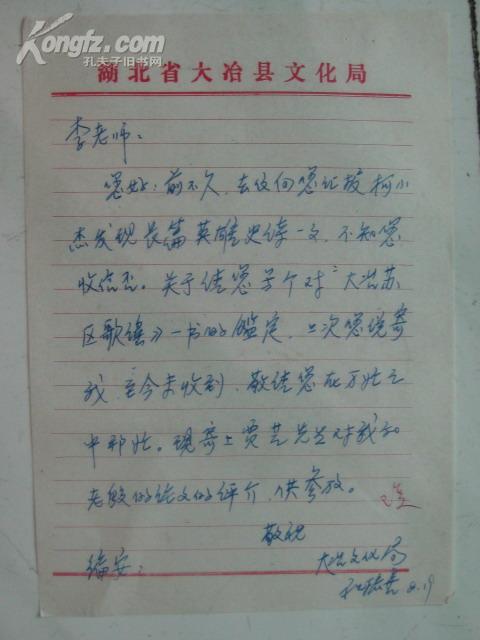 Kongfz.com
孔夫子旧书网
湖北省大冶县文化局
李老师:
您好!前不久,去信向您汇报柯小
杰发现长篇英雄史诗一文,不知您
收信否。关于请您写个对“大冶苏
区歌谣》一书的鉴定,上次您说寄
我,至今未收到,敬请您在万忙之
中帮忙。现寄上贾芝先生对我和
老殷的论文的评介,供参考。
敬祝
编安:
大冶文化局
8.19